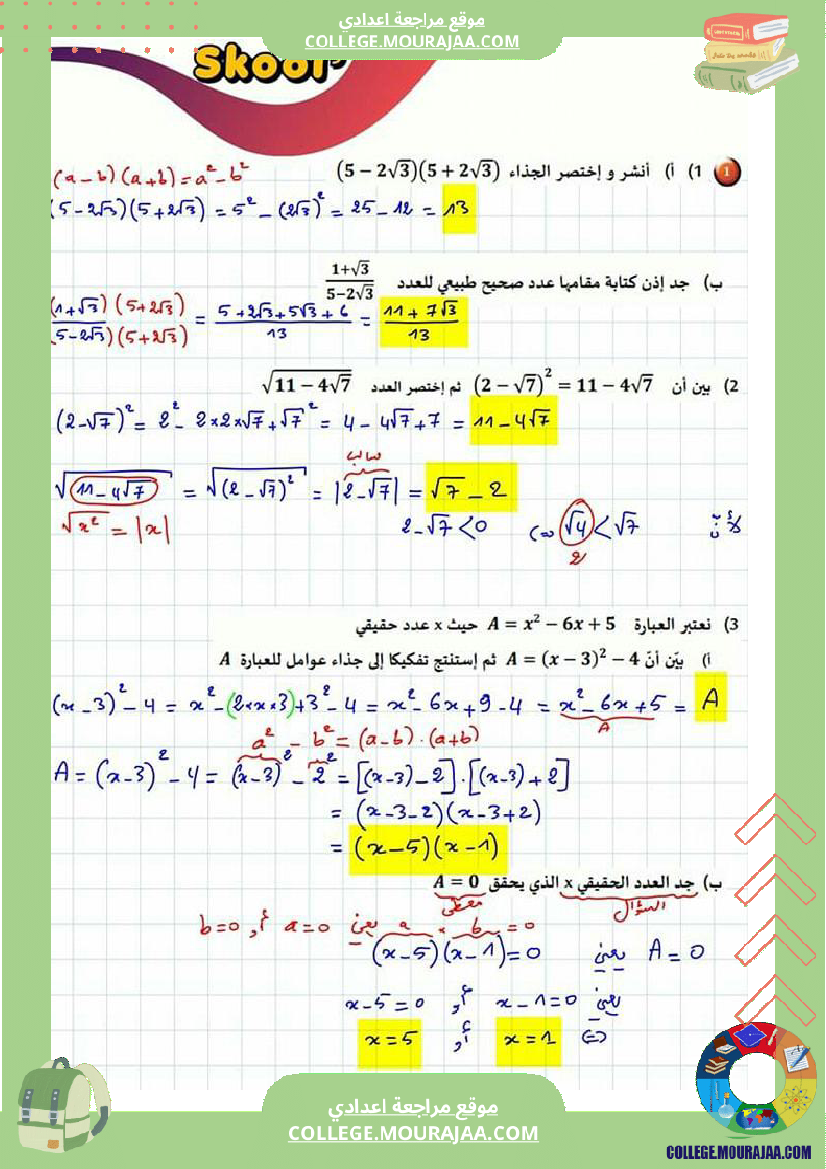 موقع مراجعة اعدادي
COLLEGE.MOURAJAA.COM
Skool
1 1) أ) أنشر و إختصر الجذاء (5 − 2√3)(5 + 2√3)
(a − b)(a + b) = a² − b²
(5 − 2√3)(5 + 2√3) = 5² − (2√3)² = 25 − 12 = 13
ب) جد إذن كتابة مقامها عدد صحيح طبيعي للعدد (1+√3)/(5−2√3)
(1+√3)(5+2√3)/(5−2√3)(5+2√3) = (5+2√3+5√3+6)/13 = (11+7√3)/13
2) بين أن (2 − √7)² = 11 − 4√7 ثم إختصر العدد √(11 − 4√7)
(2−√7)² = 2² − 2×2×√7 + √7² = 4 − 4√7 + 7 = 11 − 4√7
سالب
√(11 − 4√7) = √((2 − √7)²) = |2−√7| = √7 − 2
√x² = |x|
لأن: √4 < √7 (=> 2−√7 < 0
2
3) نعتبر العبارة A = x² − 6x + 5 حيث x عدد حقيقي
أ) بيّن أنّ A = (x − 3)² − 4 ثم إستنتج تفكيكا إلى جذاء عوامل للعبارة A
(x − 3)² − 4 = x² − (2×x×3) + 3² − 4 = x² − 6x + 9 − 4 = x² − 6x + 5 = A
A
a² − b² = (a−b).(a+b)
A = (x−3)² − 4 = (x−3)² − 2² = [(x−3) − 2].[(x−3) + 2]
= (x−3−2)(x−3+2)
= (x−5)(x−1)
ب) جد العدد الحقيقي x الذي يحقق A = 0
السؤال معطى
a × b = 0 يعني a = 0 أو b = 0
A = 0 يعني (x−5)(x−1) = 0
يعني x−1 = 0 أو x−5 = 0
(=) x = 1 أو x = 5
موقع مراجعة اعدادي
COLLEGE.MOURAJAA.COM
COLLEGE.MOURAJAA.COM